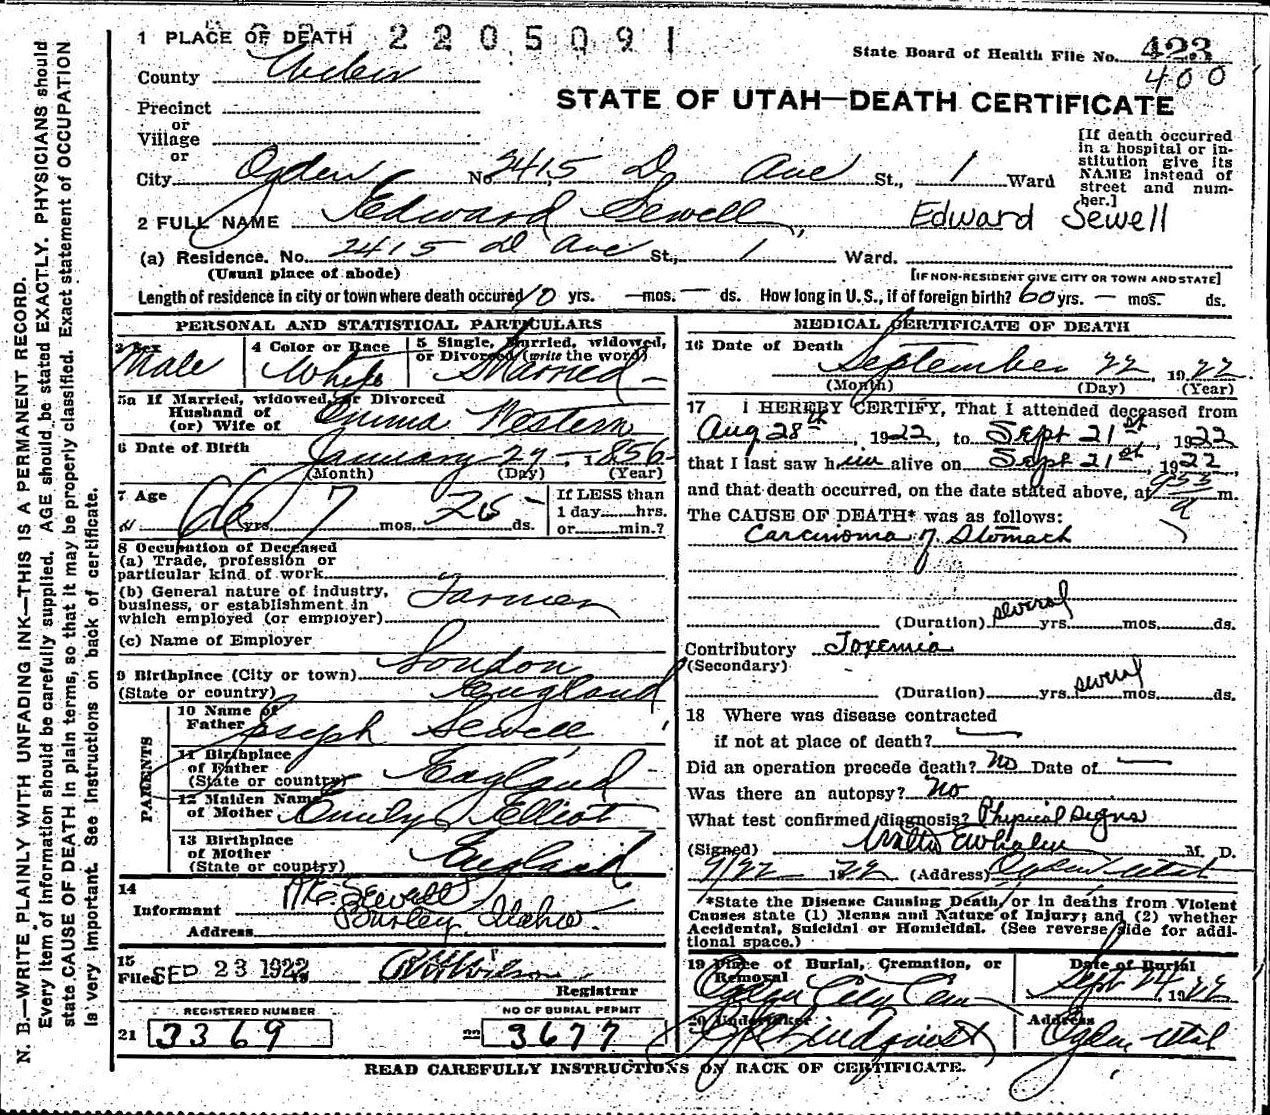 1 PLACE OF DEATH 2205091
State Board of Health File No. 423
400
County Weber
STATE OF UTAH—DEATH CERTIFICATE
Precinct
or
Village
or
City Ogden No 2415 D Ave St., 1 Ward
[If death occurred in a hospital or institution give its NAME instead of street and number.]
2 FULL NAME Edward Sewell, Edward Sewell
(a) Residence. No. 2415 D Ave St., 1 Ward.
(Usual place of abode) [IF NON-RESIDENT GIVE CITY OR TOWN AND STATE]
Length of residence in city or town where death occured 10 yrs. — mos. — ds. How long in U.S., if of foreign birth? 60 yrs. — mos. ds.
PERSONAL AND STATISTICAL PARTICULARS
3 Sex
Male
4 Color or Race
White
5 Single, Married, widowed,
or Divorced (write the word)
Married
5a If Married, widowed, or Divorced
Husband of
(or) Wife of Emma Western
6 Date of Birth January 29 1856
(Month) (Day) (Year)
7 Age
66 yrs. 7 mos. 26 ds.
If LESS than
1 day hrs.
or min.?
8 Occupation of Deceased
(a) Trade, profession or
particular kind of work
(b) General nature of industry,
business, or establishment in
which employed (or employer) Farmer
(c) Name of Employer
9 Birthplace (City or town) London
(State or country) England
PARENTS
10 Name of
Father Joseph Sewell
11 Birthplace
of Father
(State or country) England
12 Maiden Name
of Mother Emily Elliot
13 Birthplace
of Mother
(State or country) England
14
Informant Sewell
Address Burley, Idaho.
15
Filed SEP 23 1922 Wilson
Registrar
REGISTERED NUMBER
21 3369
NO OF BURIAL PERMIT
22 3677
MEDICAL CERTIFICATE OF DEATH
16 Date of Death
September 22, 1922
(Month) (Day) (Year)
17 I HEREBY CERTIFY, That I attended deceased from
Aug 28th, 1922, to Sept 21st, 1922
that I last saw him alive on Sept 21st, 1922,
and that death occurred, on the date stated above, at 955 a m.
The CAUSE OF DEATH* was as follows:
Carcinoma of Stomach
(Duration) several yrs. mos. ds.
Contributory Toxemia
(Secondary)
(Duration) yrs. several mos. ds.
18 Where was disease contracted
if not at place of death? —
Did an operation precede death? No Date of —
Was there an autopsy? No
What test confirmed diagnosis? Physical Signs
(Signed) Walter E Whalen M. D.
9/22 1922 (Address) Ogden Utah
*State the Disease Causing Death, or in deaths from Violent
Causes state (1) Menns and Nature of Injury; and (2) whether
Accidental, Suicidal or Homicidal. (See reverse side for addi-
tional space.)
19 Place of Burial, Cremation, or
Removal
Ogden City Cem
Date of Burial
Sept 24, 1922
20 Undertaker
Lindquist
Address
Ogden, Utah
READ CAREFULLY INSTRUCTIONS ON BACK OF CERTIFICATE.
N. B.—WRITE PLAINLY WITH UNFADING INK—THIS IS A PERMANENT RECORD.
Every item of information should be carefully supplied. AGE should be stated EXACTLY. PHYSICIANS should
state CAUSE OF DEATH in plain terms, so that it may be properly classified. Exact statement of OCCUPATION
is very important. See Instructions on back of certificate.